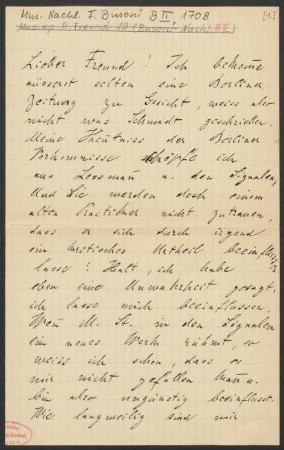 Mus. Nachl. F. Busoni B II, 1708
[1]
Mus. ep. R. Freund 19 (Busoni-Nachl. B II)
Lieber Freund! Ich bekomme
äusserst selten eine Berliner
Zeitung zu Gesicht, weiss also
nicht was Schmidt geschrieben.
Meine Kenntniss der Berliner
Vorkommnisse schöpfe ich
aus Lessmann u. den Signalen,
Und Sie werden doch einem
alten Practiker nicht zutrauen,
dass er sich durch irgend
ein kritisches Urtheil beeinflussen
lasse! Halt, ich habe
eben eine Unwahrheit gesagt,
ich lasse mich beeinflussen.
Wenn M. St. in den Signalen
ein neues Werk rühmt, so
weiss ich schon, dass es
mir nicht gefallen kann u.
bin also ungünstig beeinflusst.
Wie langweilig sind mir